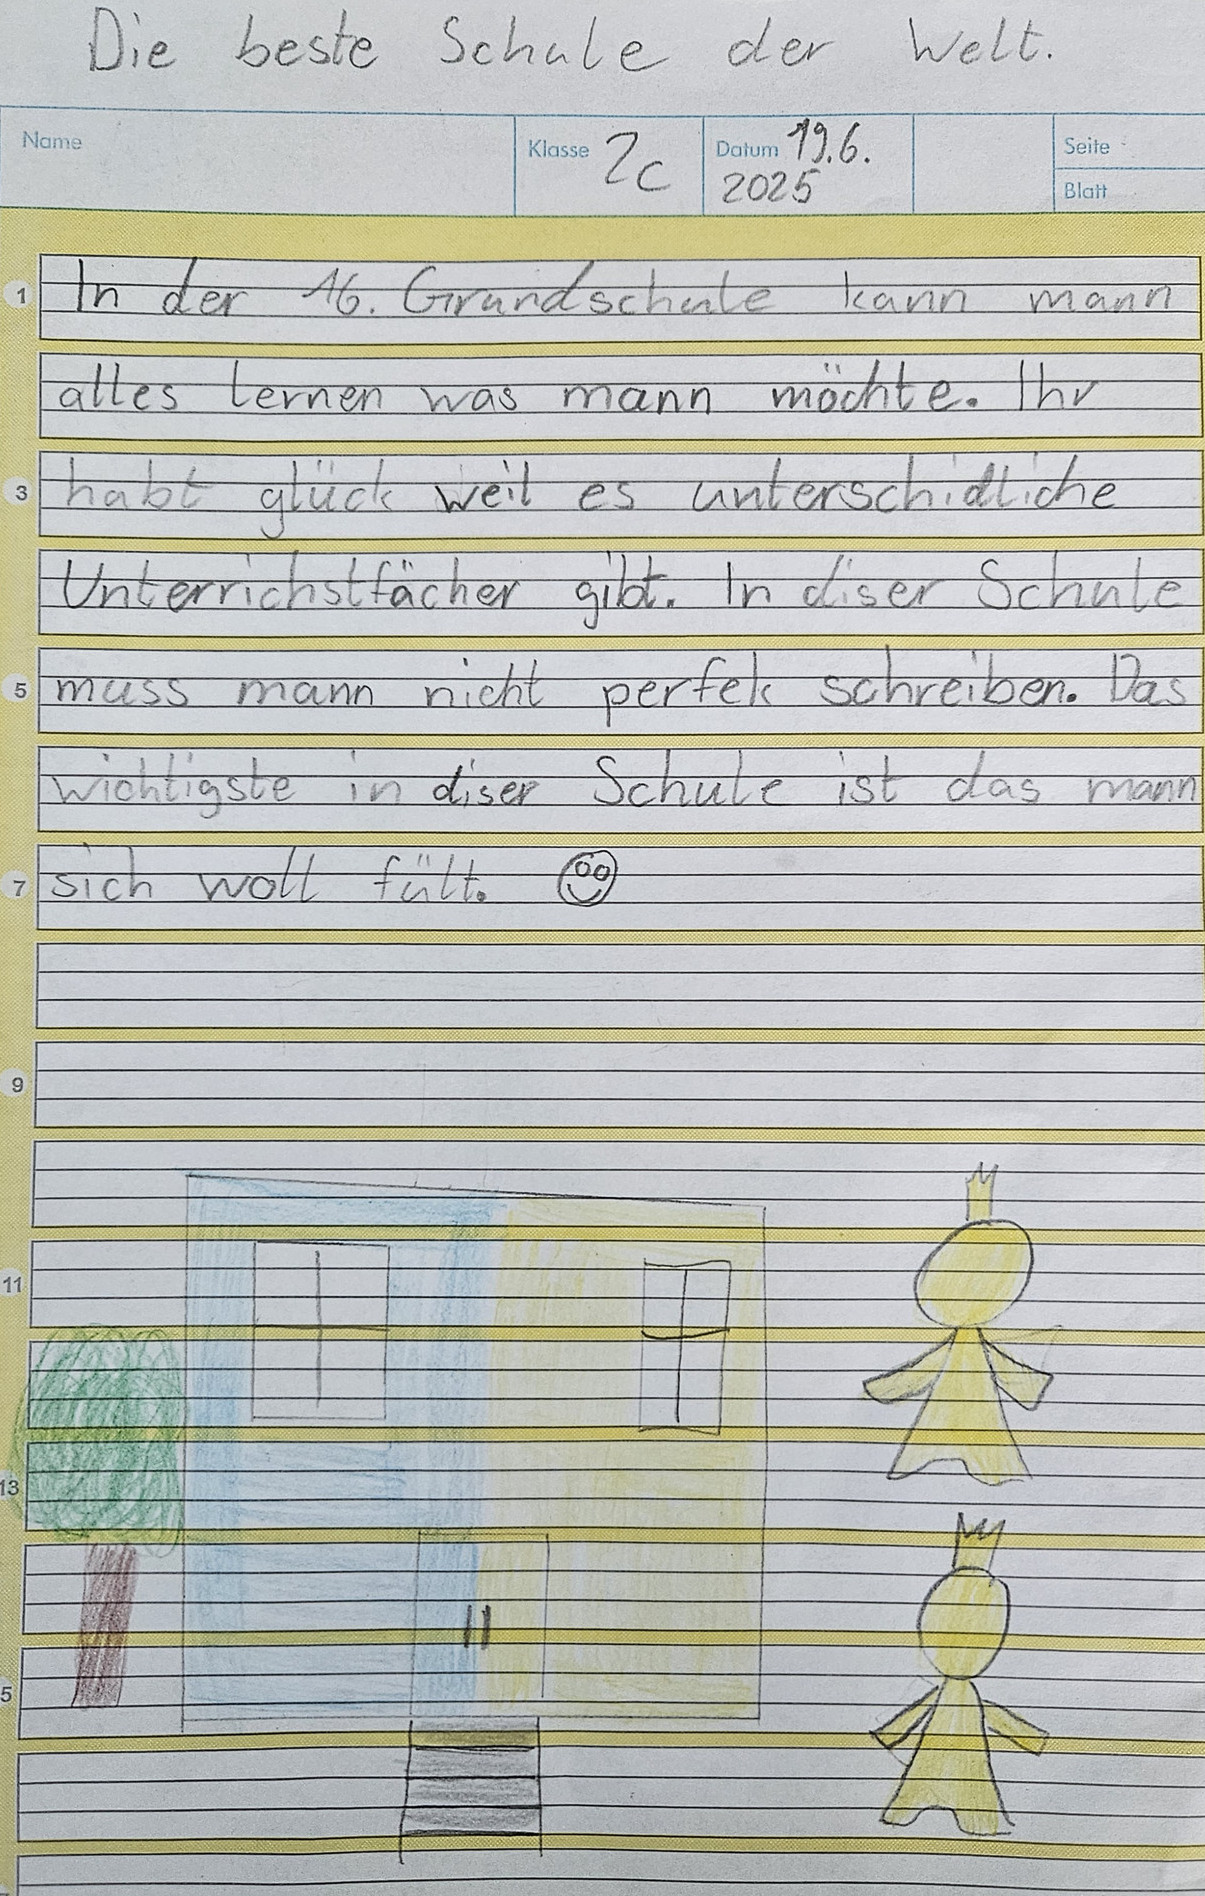 Die beste Schule der Welt.
Name Klasse 2c Datum 19.6. 2025 Seite Blatt
1 In der 16. Grundschule kann mann
alles lernen was mann möchte. Ihr
3 habt glück weil es unterschidliche
Unterrichstfächer gibt. In diser Schule
5 muss mann nicht perfek schreiben. Das
wichtigste in diser Schule ist das mann
7 sich woll fült.
9
11
13
5